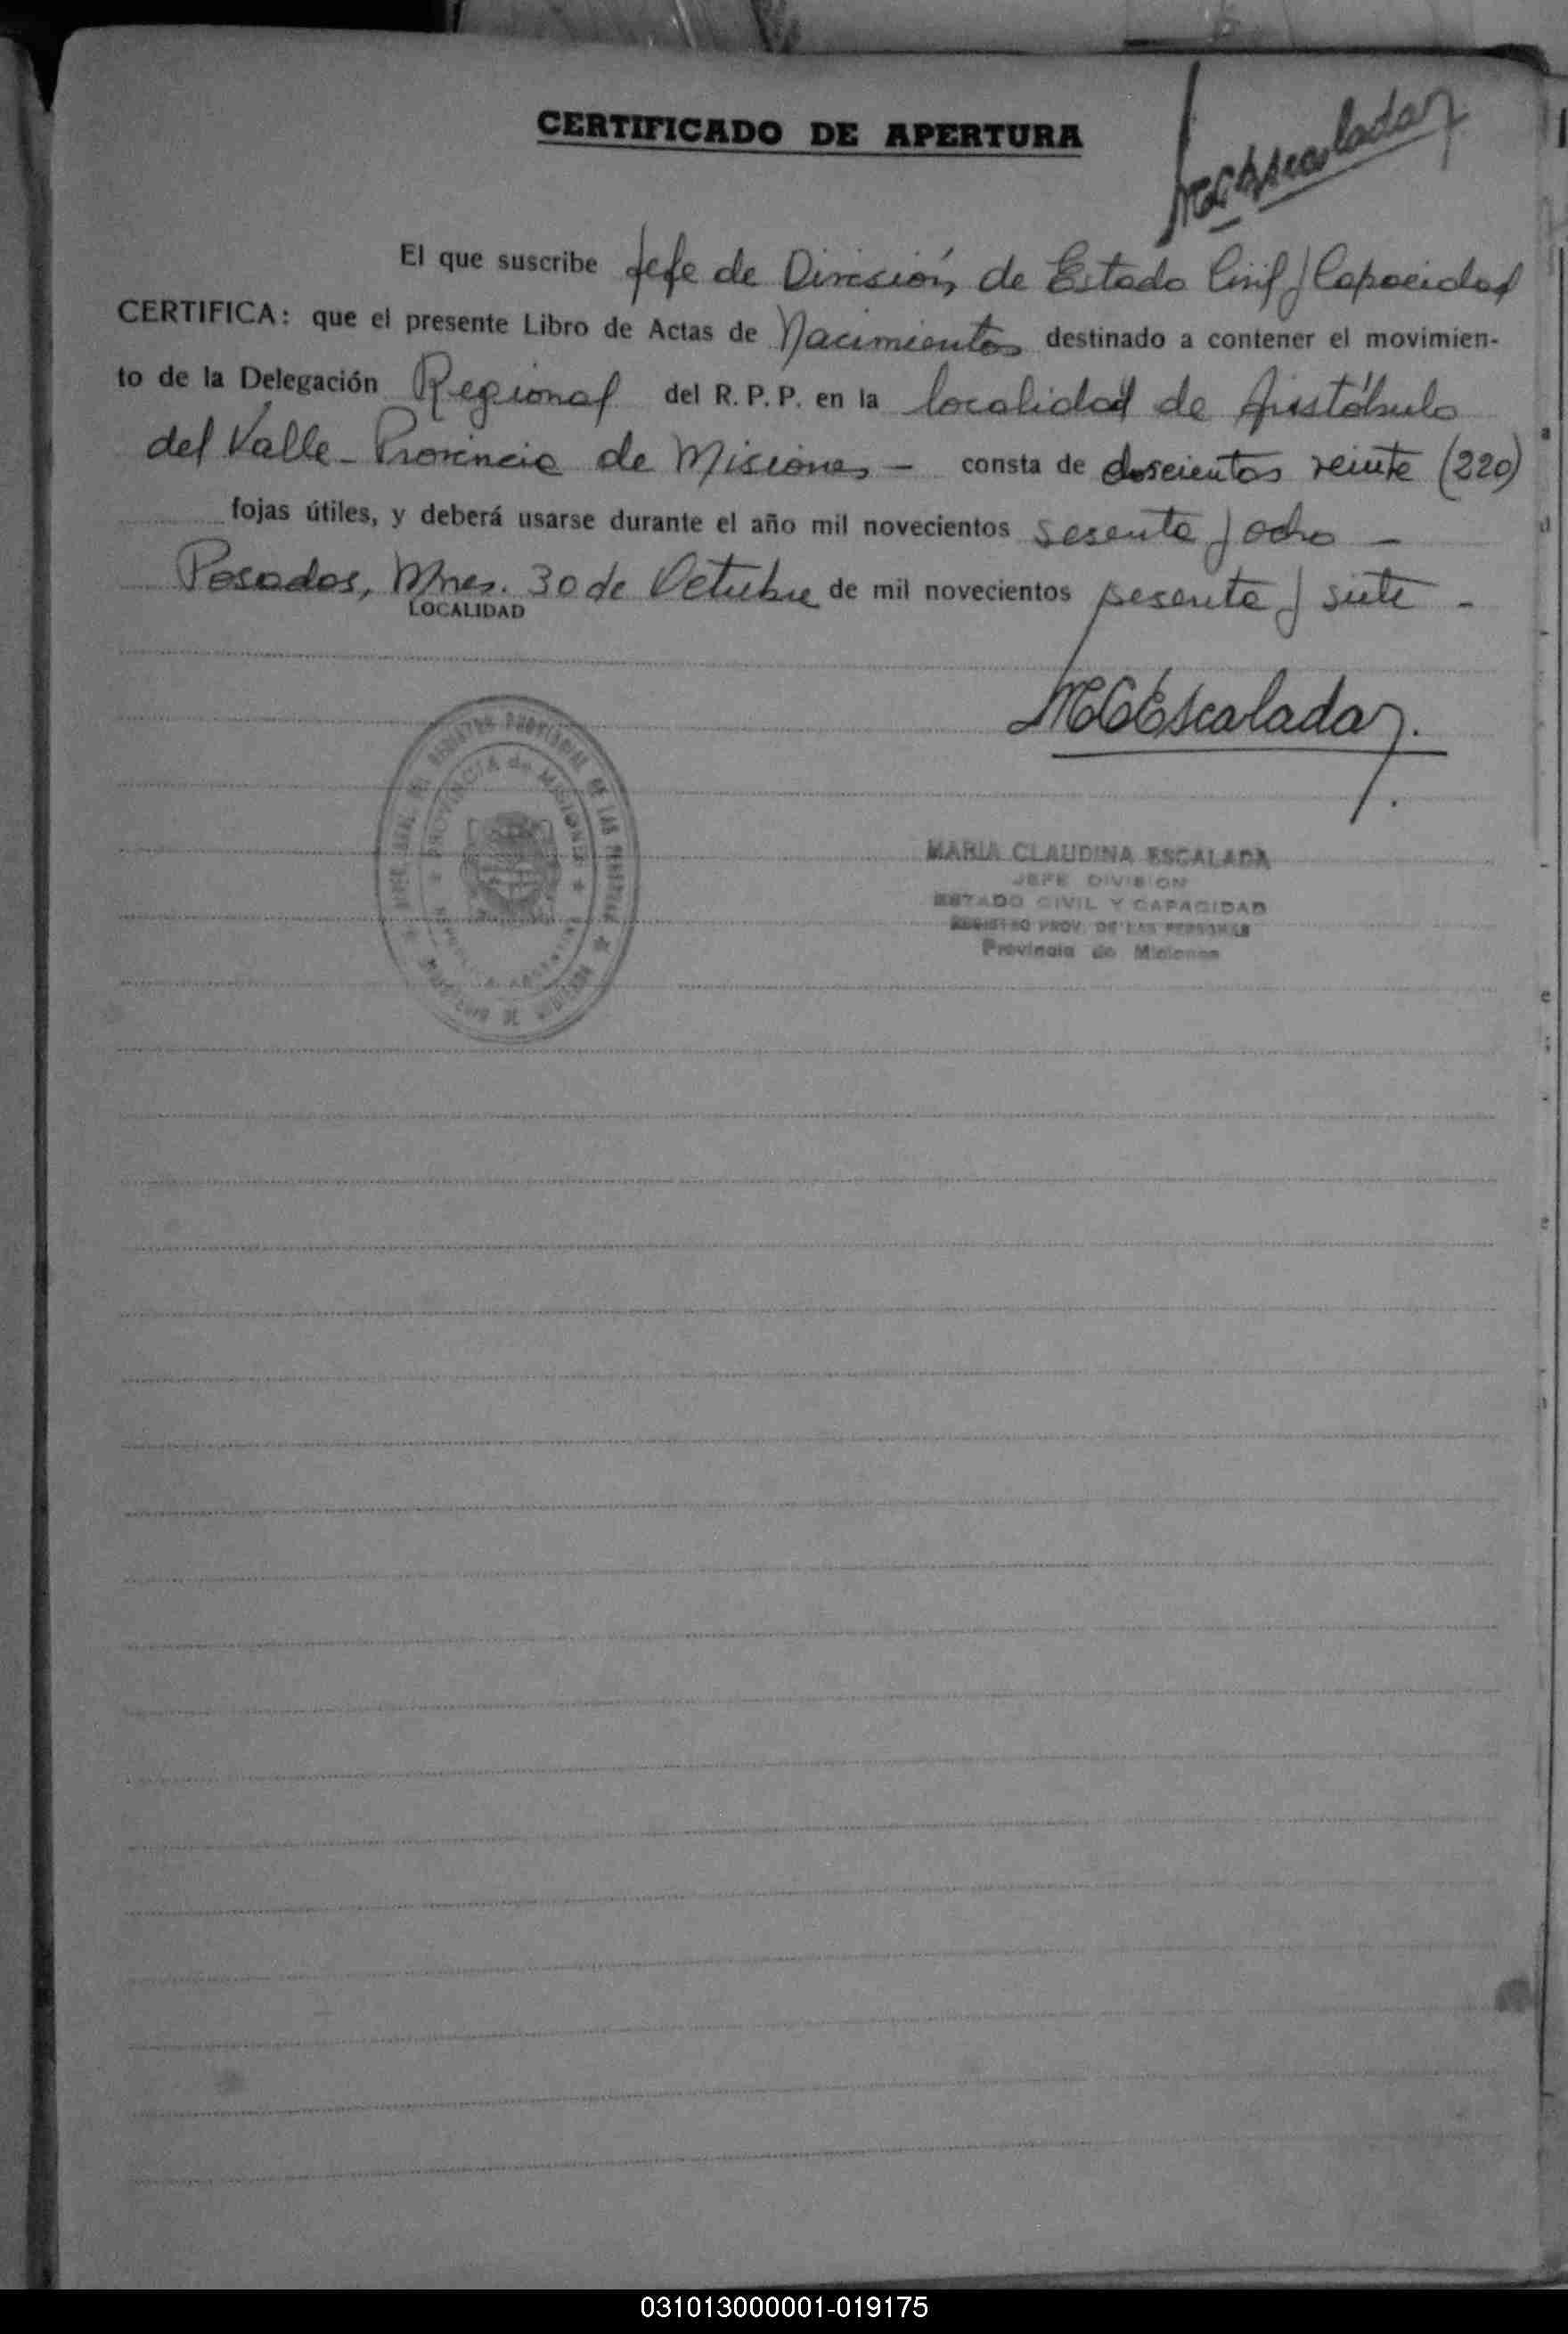 CERTIFICADO DE APERTURA
MCEscalada
El que suscribe Jefe de División de Estado Civil y Capacidad
CERTIFICA: que el presente Libro de Actas de Nacimientos destinado a contener el movimien-
to de la Delegación Regional del R. P. P. en la localidad de Aristóbulo
del Valle - Provincia de Misiones - consta de doscientos veinte (220)
fojas útiles, y deberá usarse durante el año mil novecientos sesenta y ocho -
Posadas, Mnes. 30 de Octubre de mil novecientos sesenta y siete -
LOCALIDAD
MCEscalada
PROVINCIA de MISIONES
MARIA CLAUDINA ESCALADA
JEFE DIVISION
ESTADO CIVIL Y CAPACIDAD
REGISTRO PROV. DE LAS PERSONAS
Provincia de Misiones
031013000001-019175